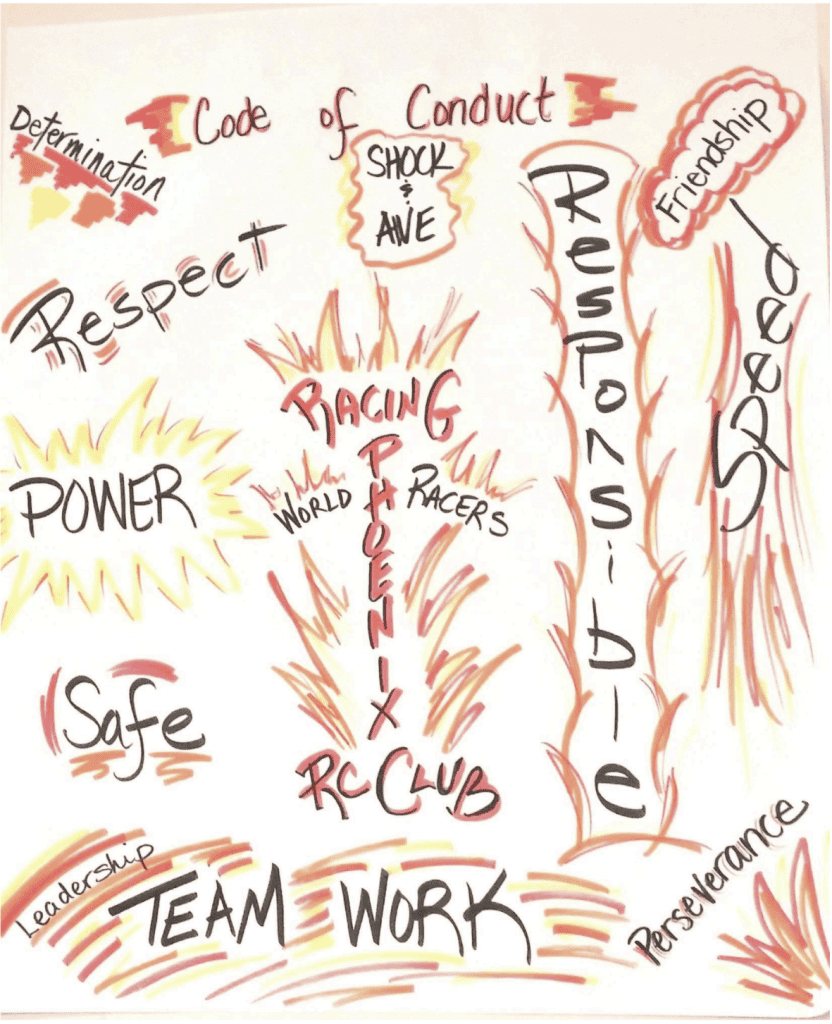 Code of Conduct
Determination
SHOCK
&
AWE
Friendship
Respect
Responsible
Speed
RACING
PHOENIX
WORLD RACERS
POWER
Safe
RC CLUB
Leadership
TEAM WORK
Perseverance